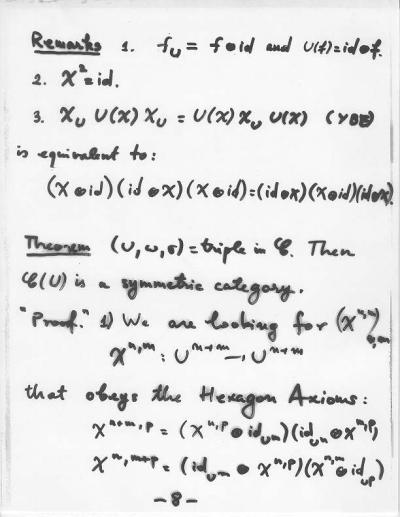 Remarks 1. f_U = f ⊗ id and U(f) = id ⊗ f.
2. X² = id.
3. X_U U(X) X_U = U(X) X_U U(X) (YBE)
is equivalent to:
(X ⊗ id)(id ⊗ X)(X ⊗ id) = (id ⊗ X)(X ⊗ id)(id ⊗ X).
Theorem (U, ω, σ) = triple in 𝒞. Then
𝒞(U) is a symmetric category.
"Proof." 1) We are looking for (X^{n,m})_{n,m}
X^{n,m} : U^{n+m} → U^{n+m}
that obeys the Hexagon Axioms:
X^{n+m,p} = (X^{n,p} ⊗ id_{U^m})(id_{U^n} ⊗ X^{m,p})
X^{n,m+p} = (id_{U^m} ⊗ X^{n,p})(X^{n,m} ⊗ id_{U^p})
-8-